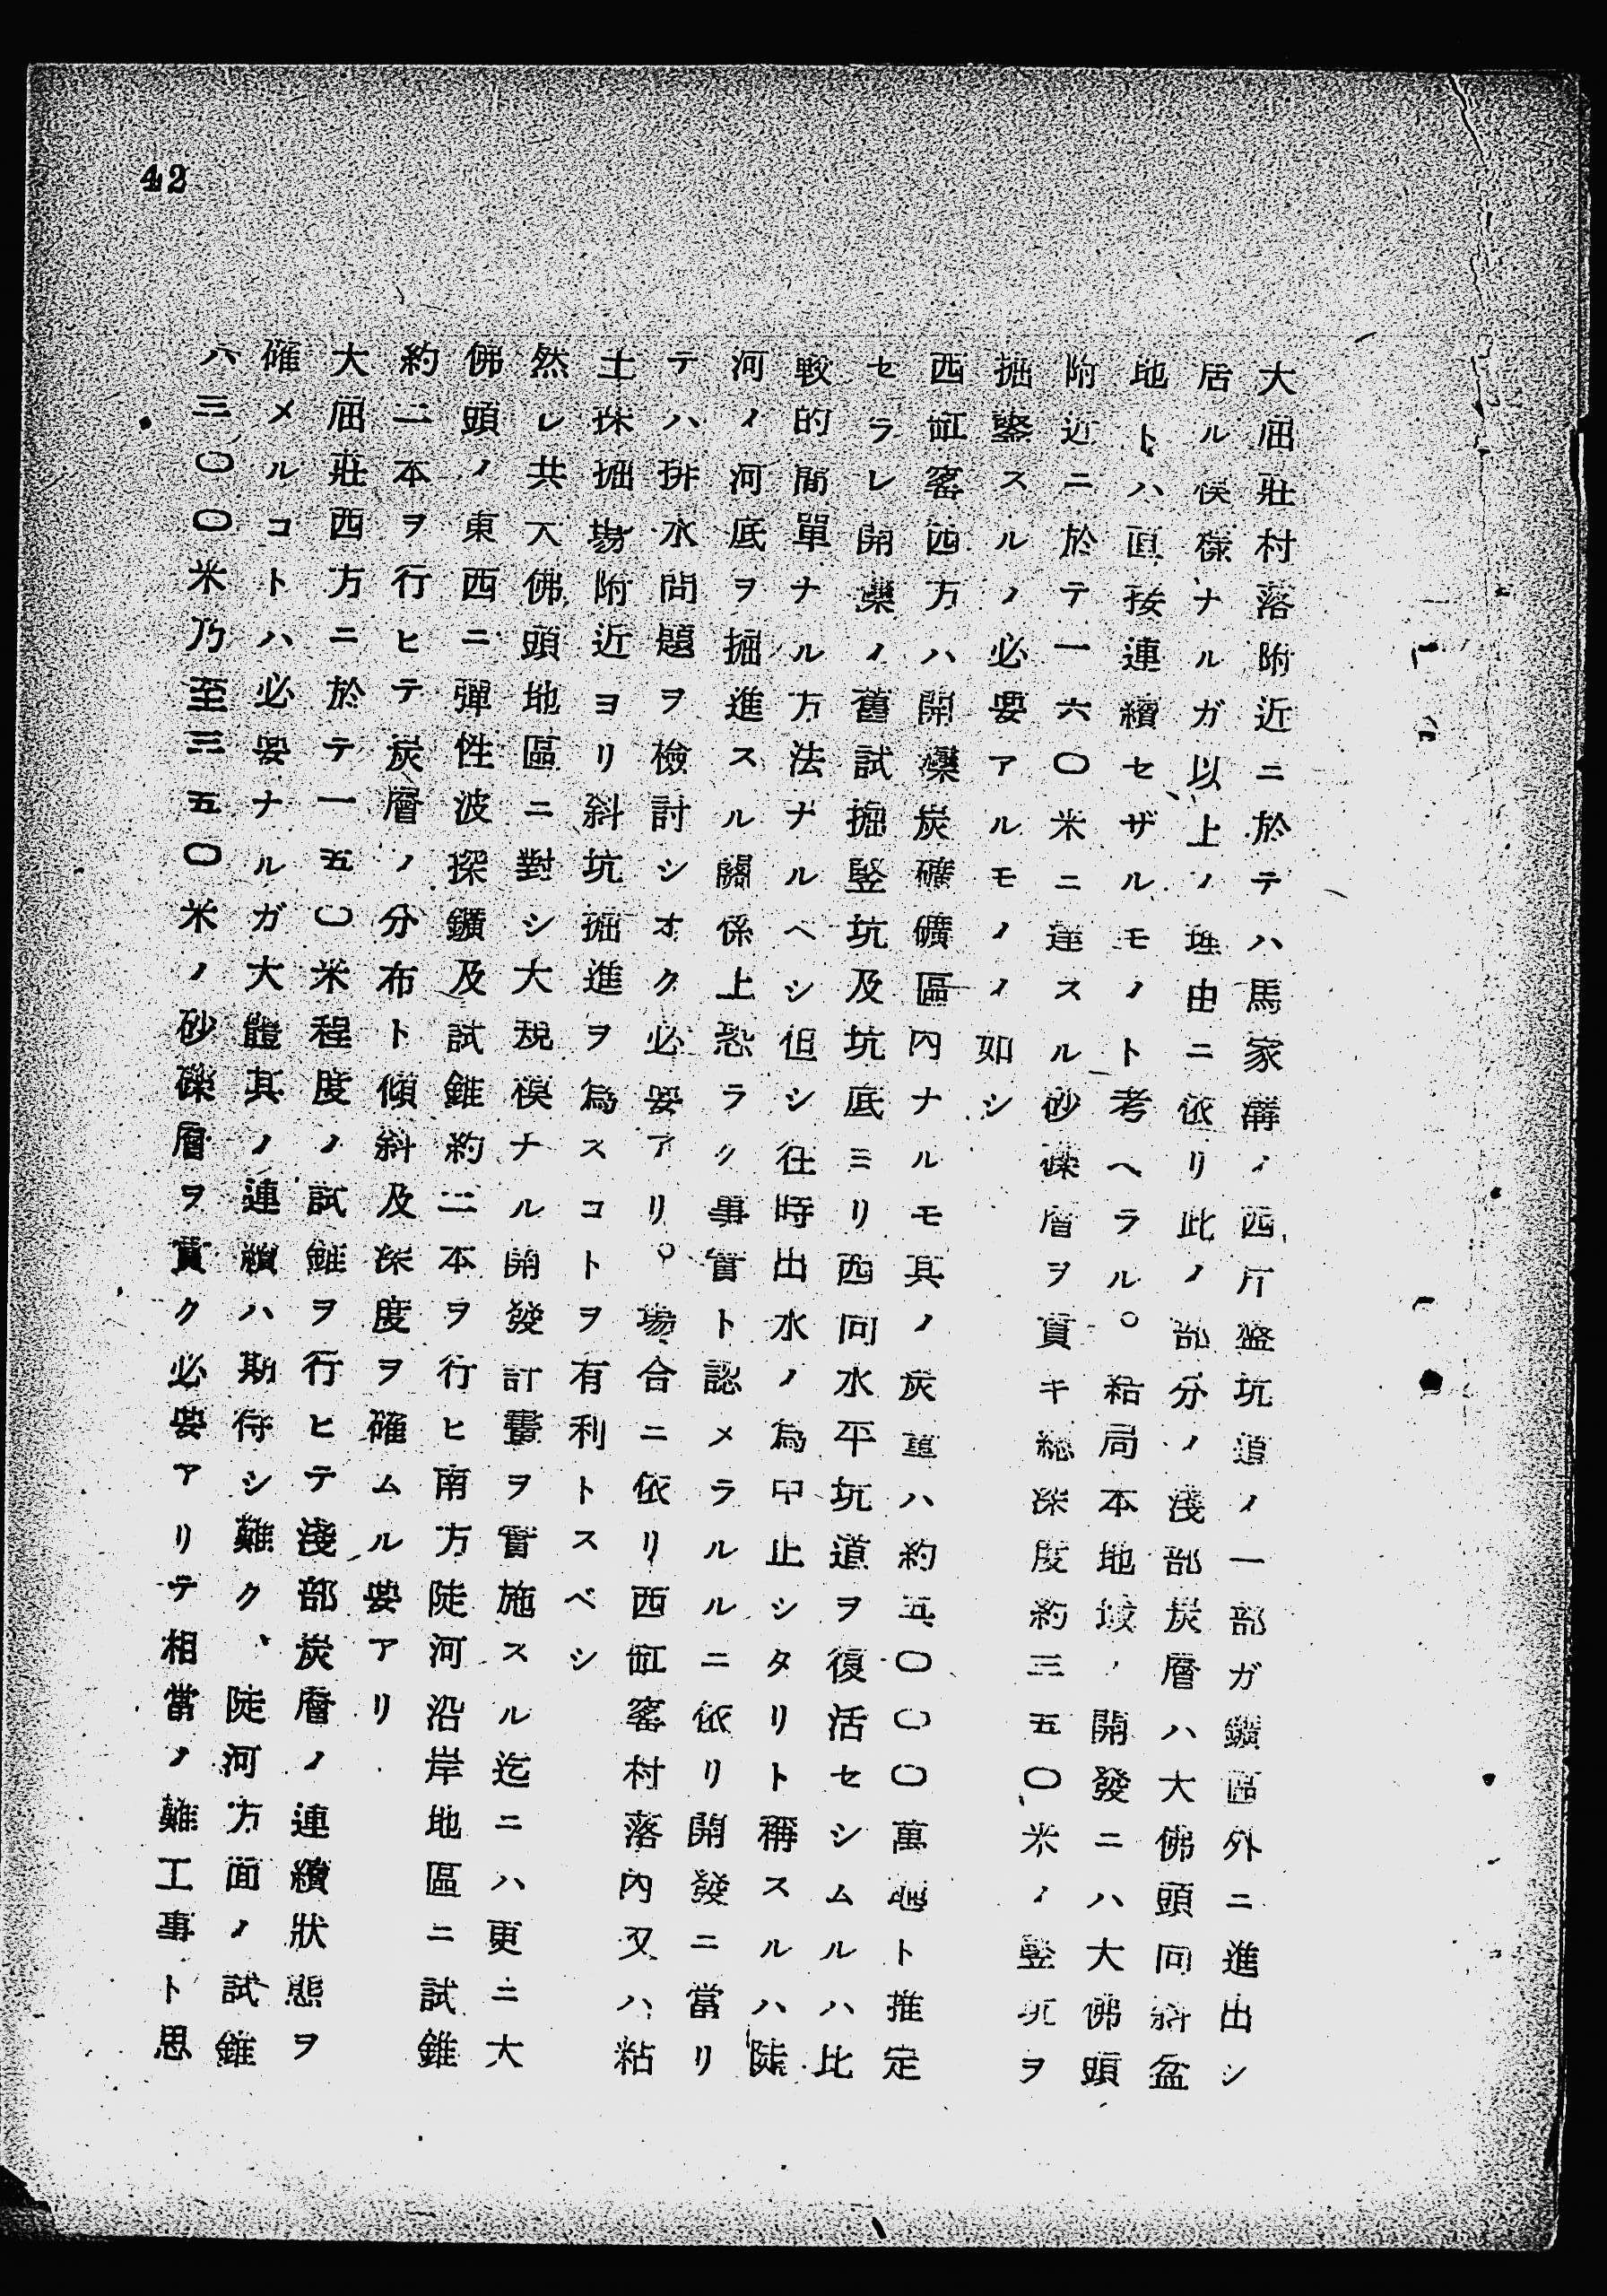 42
大屈莊村落附近ニ於テハ馬家溝ノ西斤盤坑道ノ一部ガ鑛區外ニ進出シ
居ル模樣ナルガ以上ノ理由ニ依リ此ノ部分ノ淺部炭層ハ大佛頭向斜盆
地トハ直接連續セザルモノト考ヘラル。結局本地域、開發ニハ大佛頭
附近ニ於テ一六〇米ニ達スル砂礫層ヲ貫キ総深度約三五〇米ノ竪坑ヲ
掘鑿スルノ必要アルモノノ如シ
西缸窰西方ハ開灤炭礦礦區內ナルモ其ノ炭量ハ約五〇〇〇萬瓲ト推定
セラレ開灤ノ舊試掘竪坑及坑底ヨリ西向水平坑道ヲ復活セシムルハ比
較的簡單ナル方法ナルベシ但シ往時出水ノ為中止シタリト稱スルハ陡
河ノ河底ヲ掘進スル關係上恐ラク事實ト認メラルルニ依リ開發ニ當リ
テハ排水問題ヲ檢討シオク必要アリ。場合ニ依リ西缸窰村落內又ハ粘
土採掘場附近ヨリ斜坑掘進ヲ為スコトヲ有利トスベシ
然レ共大佛頭地區ニ對シ大規模ナル開發計畫ヲ實施スル迄ニハ更ニ大
佛頭ノ東西ニ彈性波探鑛及試錐約二本ヲ行ヒ南方陡河沿岸地區ニ試錐
約二本ヲ行ヒテ炭層ノ分布ト傾斜及深度ヲ確ムル要アリ
大屈莊西方ニ於テ一五〇米程度ノ試錐ヲ行ヒテ淺部炭層ノ連續狀態ヲ
確メルコトハ必要ナルガ大體其ノ連續ハ期待シ難ク、陡河方面ノ試錐
八三〇〇米乃至三五〇米ノ砂礫層ヲ貫ク必要アリテ相當ノ難工事ト思